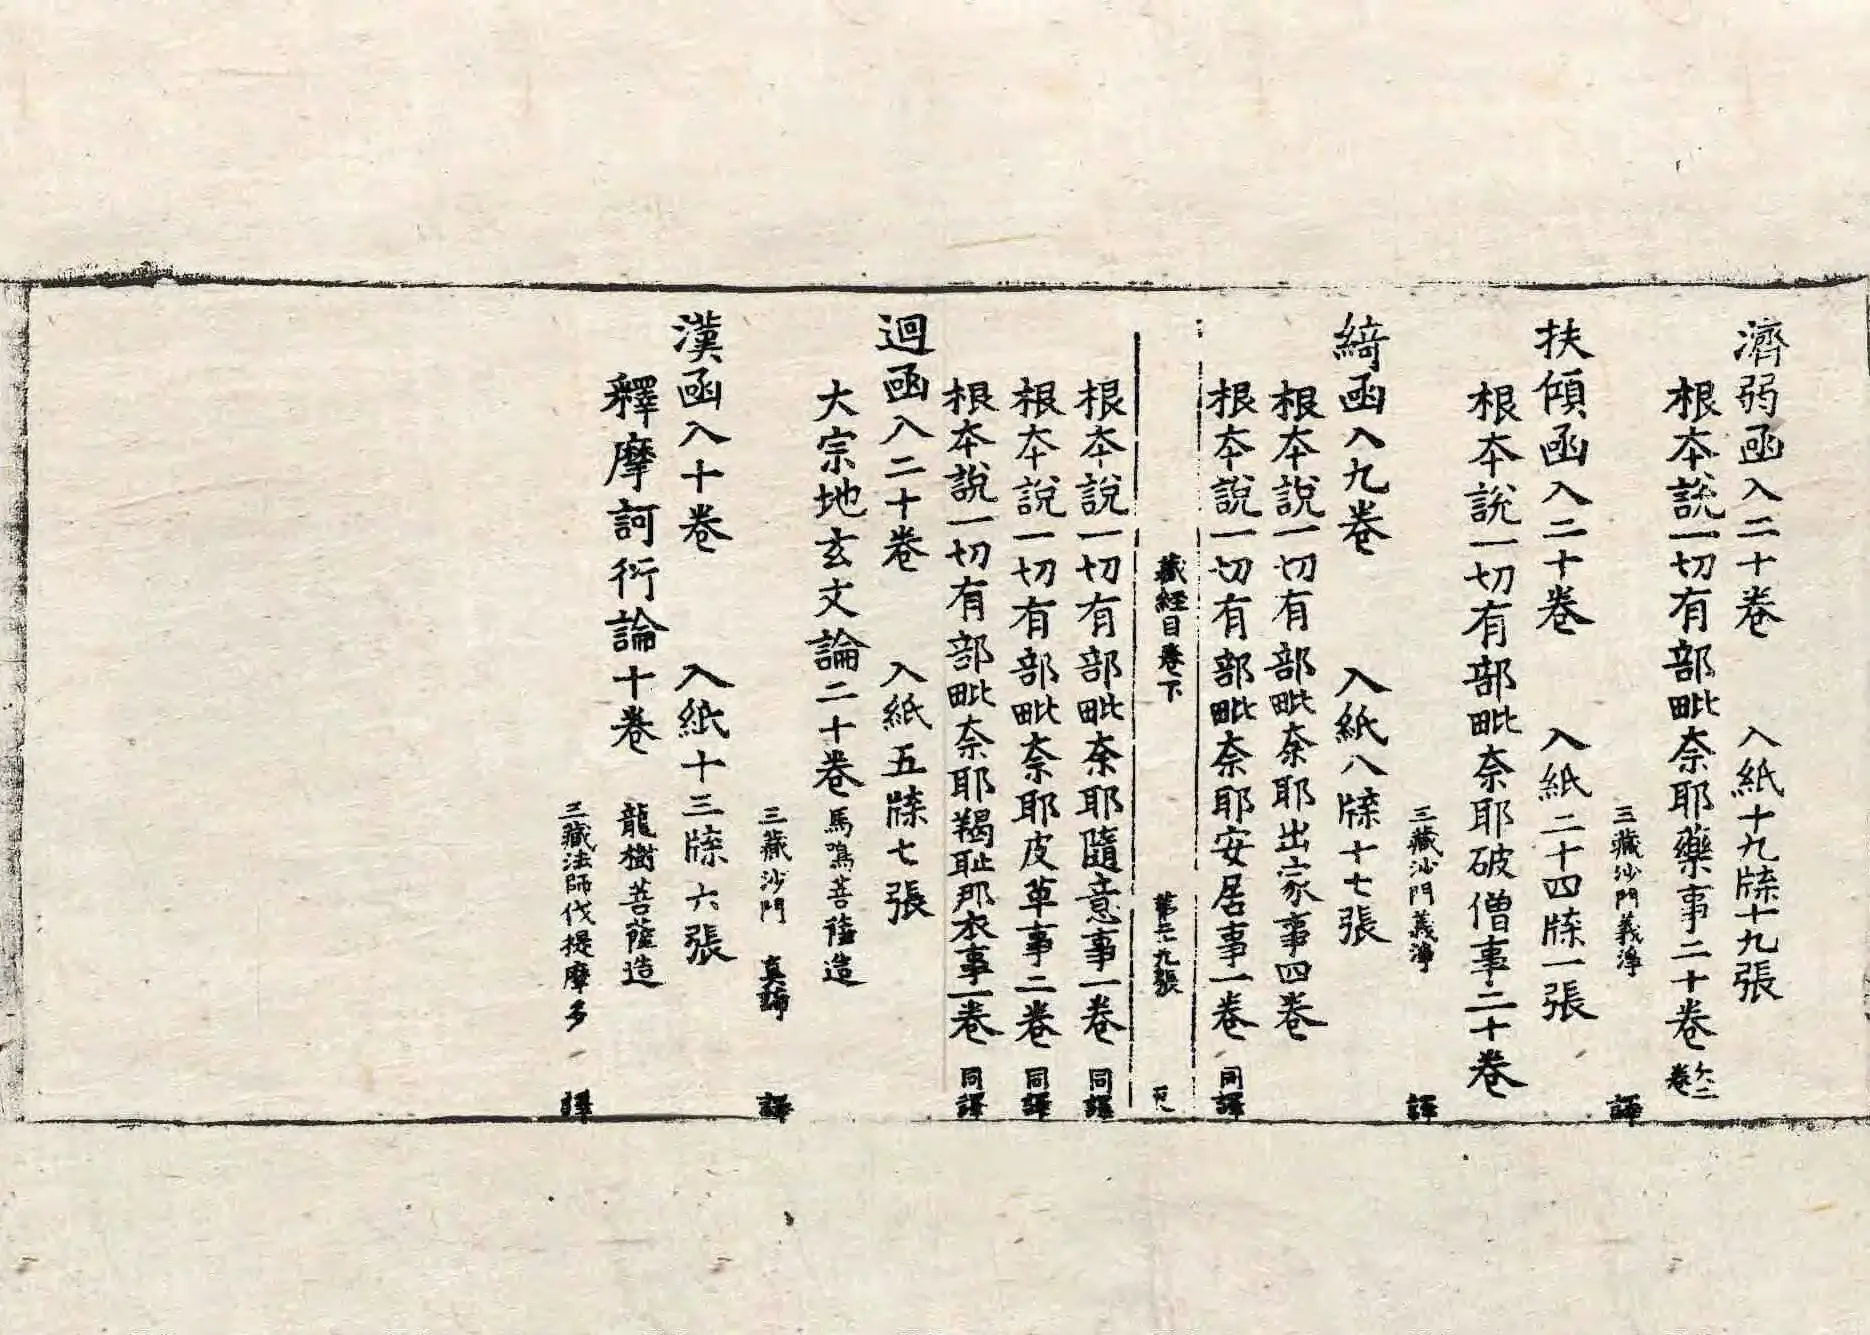 濟弱函入二十卷　入紙十九牒十九張
根本說一切有部毗奈耶藥事二十卷 欠二卷
三藏沙門義淨　譯
扶傾函入二十卷　入紙二十四牒一張
根本說一切有部毗奈耶破僧事二十卷
三藏沙門義淨　譯
綺函入九卷　入紙八牒十七張
根本說一切有部毗奈耶出家事四卷
根本說一切有部毗奈耶安居事一卷　同譯
藏經目卷下　第三九張
根本說一切有部毗奈耶隨意事一卷　同譯
根本說一切有部毗奈耶皮革事二卷　同譯
根本說一切有部毗奈耶羯耻那衣事一卷　同譯
迴函入二十卷　入紙五牒七張
大宗地玄文論二十卷　馬鳴菩薩造
三藏沙門　真諦　譯
漢函入十卷　入紙十三牒六張
釋摩訶衍論十卷　龍樹菩薩造
三藏法師伐提摩多　譯